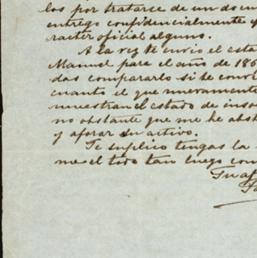 los por tratarce de un docum
entrego confidencialmente y
racter oficial alguno.
A la vez te envio el esta
Manuel para el año de 186
das compararlo si te conv
cuanto el que nuevamente
muestran el estado de inso
no obstante que me he abst
y aforar su activo.
Te suplico tengas la
mes el tivo tan luego com
Tu af